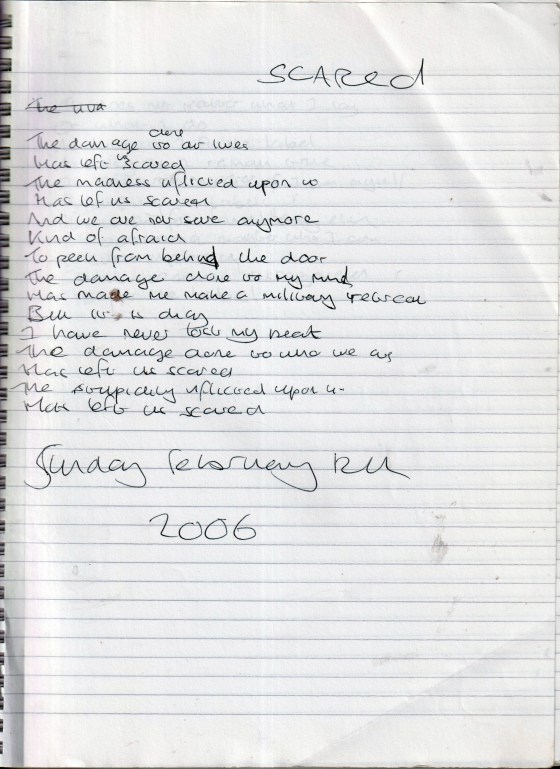 SCARed
The
done
The damage to our lives
Has left us scared
The madness inflicted upon us
Has left us scared
And we are not save anymore
Kind of afraid
To peek from behind the door
The damage done to my mind
Has made me make a military retreat
But it is okay
I have never lost my
The damage done to who we are
Has left us scared
The stupidity inflicted upon us
Has left us scared
Sunday February 12th
2006